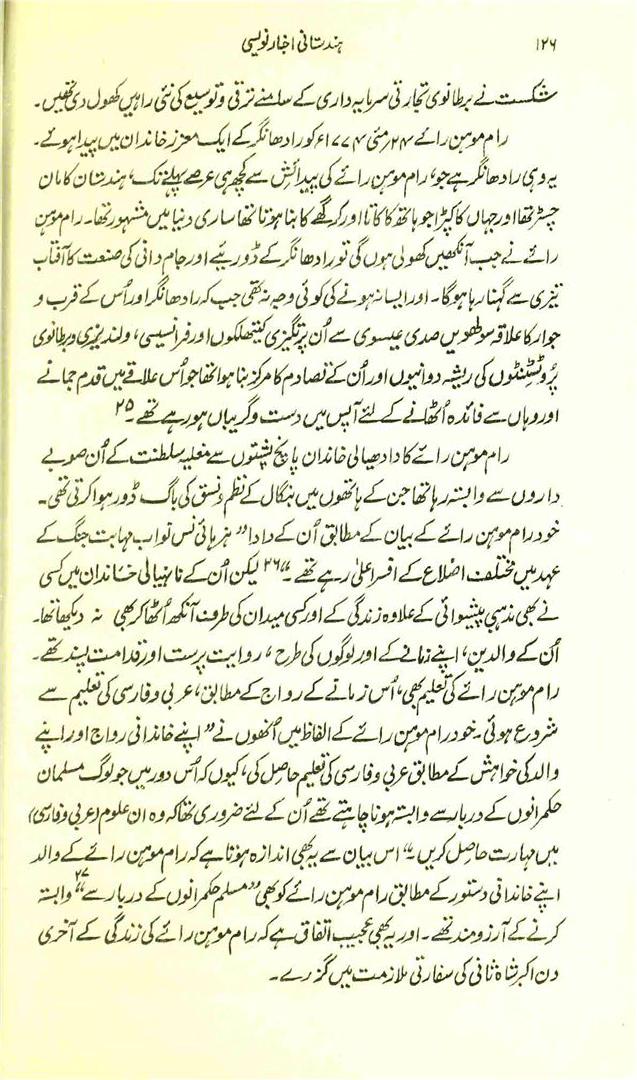 ۱۲۶
ہندستانی اخبار نویسی
شکست نے برطانوی تجارتی سرمایہ داری کے سامنے ترقی و توسیع کی نئی راہیں کھول دی تھیں۔
رام موہن رائے ۲۴ مئی ۱۷۷۴ء کو رادھانگر کے ایک معزز خاندان میں پیدا ہوئے۔
یہ وہی رادھانگر ہے جو، رام موہن رائے کی پیدائش سے کچھ ہی عرصے پہلے تک، ہندستان کا مان
چسٹر تھا اور جہاں کا کپڑا جو ہاتھ کا کاتا اور کرگھے کا بنا ہوتا تھا ساری دنیا میں مشہور تھا۔ رام موہن
رائے نے جب آنکھیں کھولی ہوں گی تو رادھانگر کے ڈوریے اور جام دانی کی صنعت کا آفتاب
تیزی سے گہنا رہا ہوگا۔ اور ایسا نہ ہونے کی کوئی وجہ نہ تھی جب کہ رادھانگر اور اُس کے قرب و
جوار کا علاقہ سولھویں صدی عیسوی سے اُن پرتگیزی کیتھلکوں اور فرانسیسی، ولندیزی و برطانوی
پروٹسٹنٹوں کی ریشہ دوانیوں اور اُن کے تصادم کا مرکز بنا ہوا تھا جو اُس علاقے میں قدم جمانے
اور وہاں سے فائدہ اُٹھانے کے لئے آپس میں دست و گریباں ہو رہے تھے۔ ۲۵
رام موہن رائے کا دادھیالی خاندان پانچ پشتوں سے مغلیہ سلطنت کے اُن صوبے
داروں سے وابستہ رہا تھا جن کے ہاتھوں میں بنگال کے نظم و نسق کی باگ ڈور ہوا کرتی تھی۔
خود رام موہن رائے کے بیان کے مطابق اُن کے دادا “ہز ہائی نس نواب مہابت جنگ کے
عہد میں مختلف اضلاع کے افسرِ اعلیٰ رہے تھے۔” ۲۶ لیکن اُن کے نانہیالی خاندان میں کسی
نے بھی مذہبی پیشوائی کے علاوہ زندگی کے اور کسی میدان کی طرف آنکھ اُٹھا کر بھی نہ دیکھا تھا۔
اُن کے والدین، اپنے زمانے کے اور لوگوں کی طرح، روایت پرست اور قدامت پسند تھے۔
رام موہن رائے کی تعلیم بھی، اُس زمانے کے رواج کے مطابق، عربی و فارسی کی تعلیم سے
شروع ہوئی۔ خود رام موہن رائے کے الفاظ میں اُنھوں نے “اپنے خاندانی رواج اور اپنے
والد کی خواہش کے مطابق عربی و فارسی کی تعلیم حاصل کی، کیوں کہ اُس دور میں جو لوگ مسلمان
حکمرانوں کے دربار سے وابستہ ہونا چاہتے تھے اُن کے لئے ضروری تھا کہ وہ ان علوم (عربی و فارسی)
میں مہارت حاصل کریں۔” اس بیان سے یہ بھی اندازہ ہوتا ہے کہ رام موہن رائے کے والد
اپنے خاندانی دستور کے مطابق رام موہن رائے کو بھی “مسلم حکمرانوں کے دربار سے” ۲۷ وابستہ
کرنے کے آرزو مند تھے۔ اور یہ بھی عجیب اتفاق ہے کہ رام موہن رائے کی زندگی کے آخری
دن اکبر شاہ ثانی کی سفارتی ملازمت میں گزرے۔